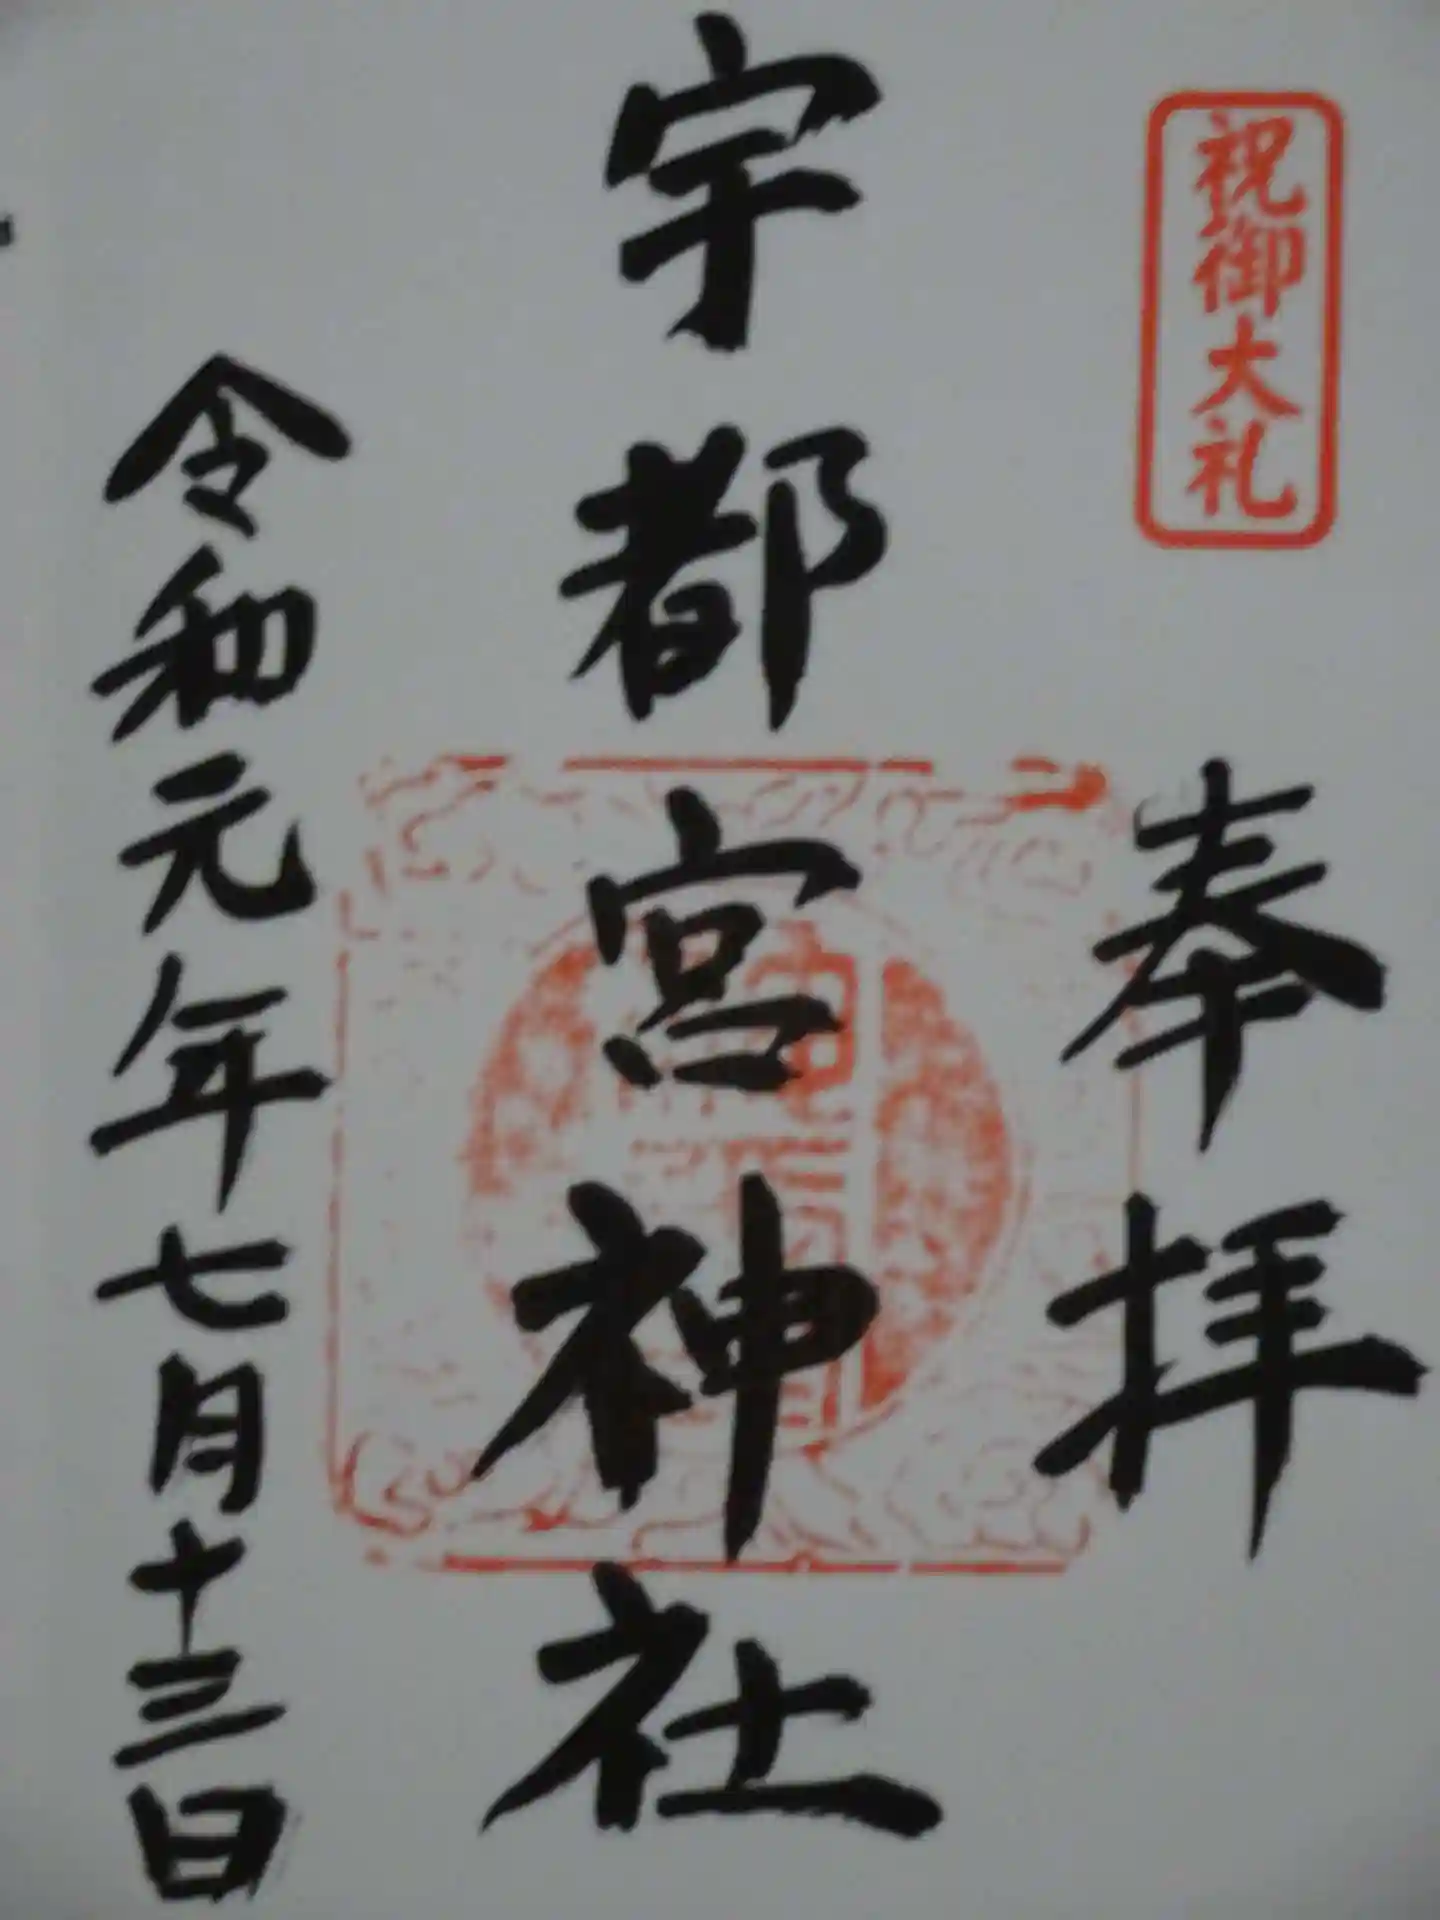 祝御大礼
奉拝
宇都宮神社
令和元年七月十三日